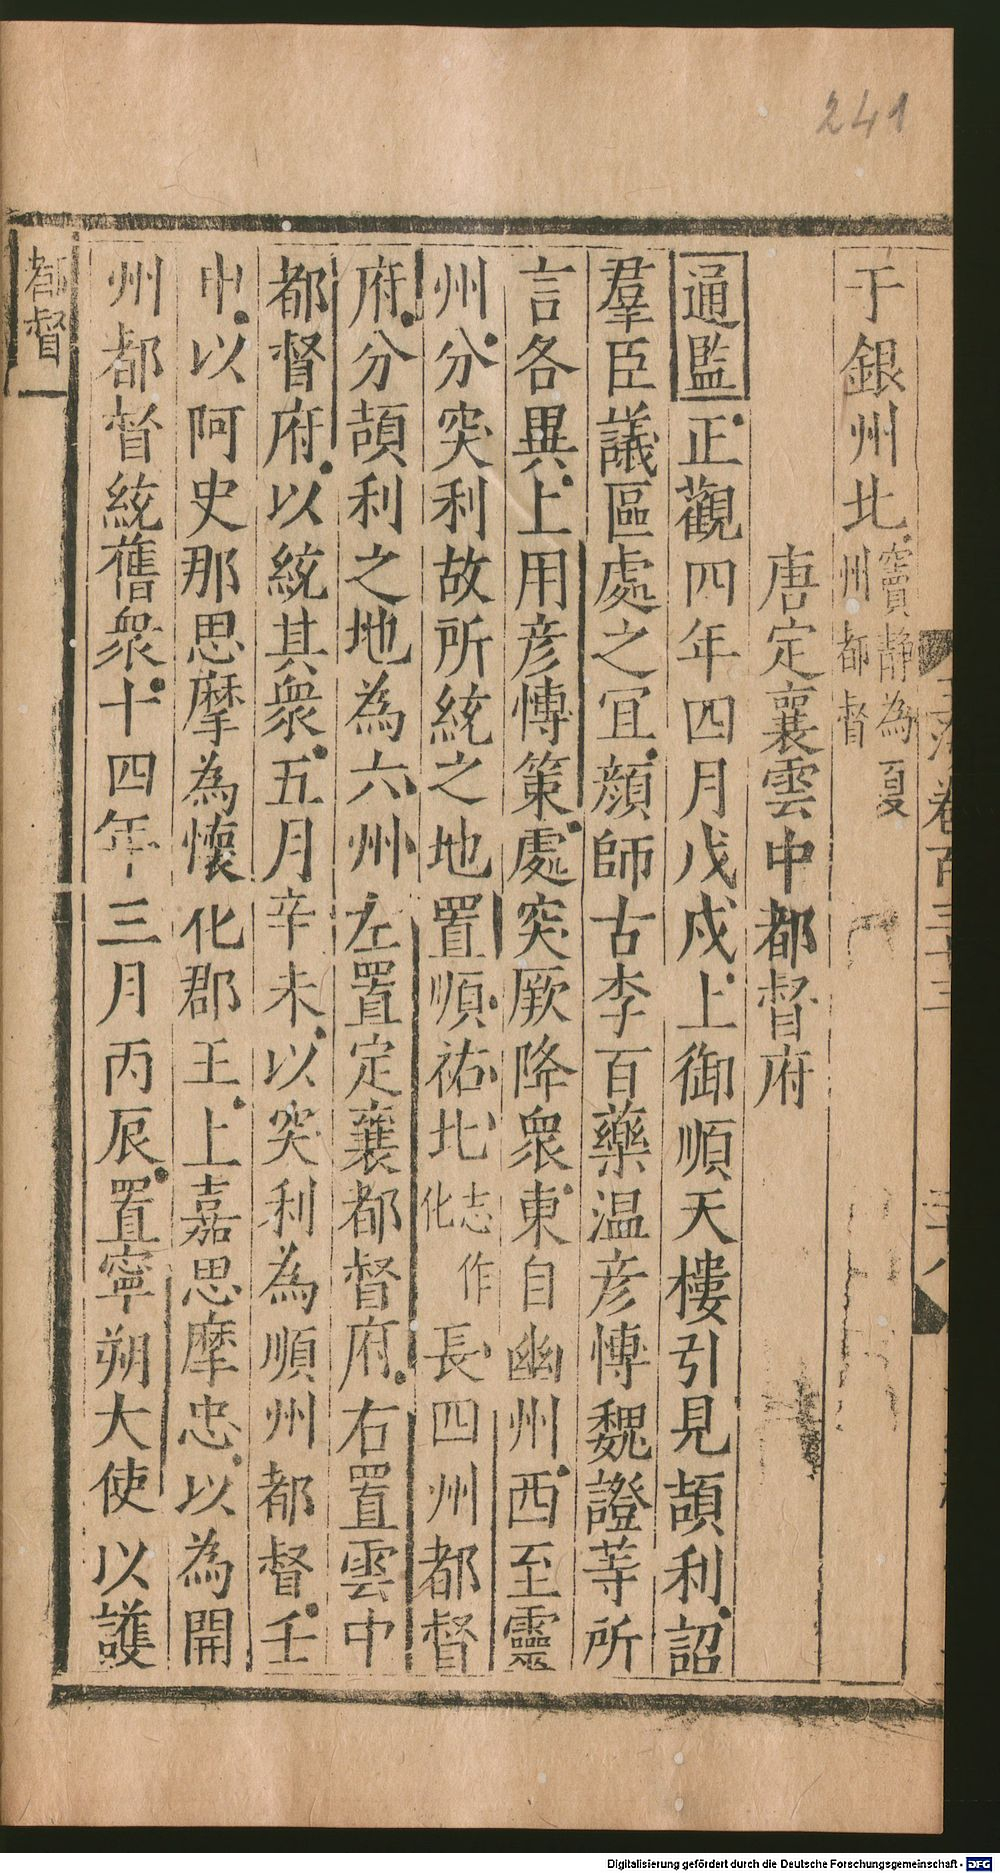 241
于銀州北竇静為夏州都督
唐定襄雲中都督府
通監正觀四年四月戊戌上御順天樓引見頡利詔
羣臣議區處之宜顔師古李百藥温彦愽魏證等所
言各異上用彦愽策處突厥降衆東自幽州西至靈
州分突利故所統之地置順祐北志作化長四州都督
府分頡利之地為六州左置定襄都督府右置雲中
都督府以統其衆五月辛未以突利為順州都督壬
申以阿史那思摩為懷化郡王上嘉思摩忠以為開
州都督統舊衆十四年三月丙辰置寧朔大使以護
都督
Digitalisierung gefördert durch die Deutsche Forschungsgemeinschaft - DFG